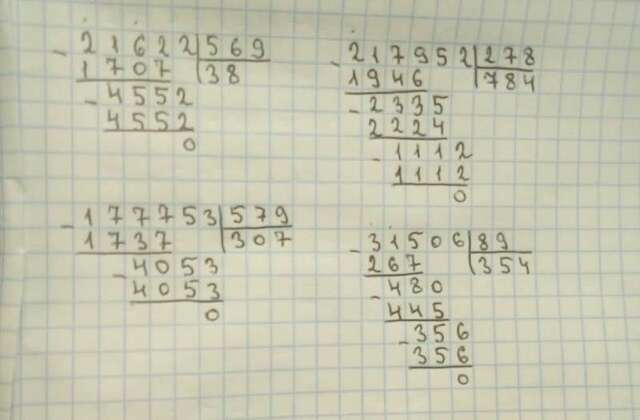 21622 569
1707 38
4552
4552
0
217952 278
1946 784
2335
2224
1112
1112
0
177753 579
1737 307
4053
4053
0
31506 89
267 354
480
445
356
356
0